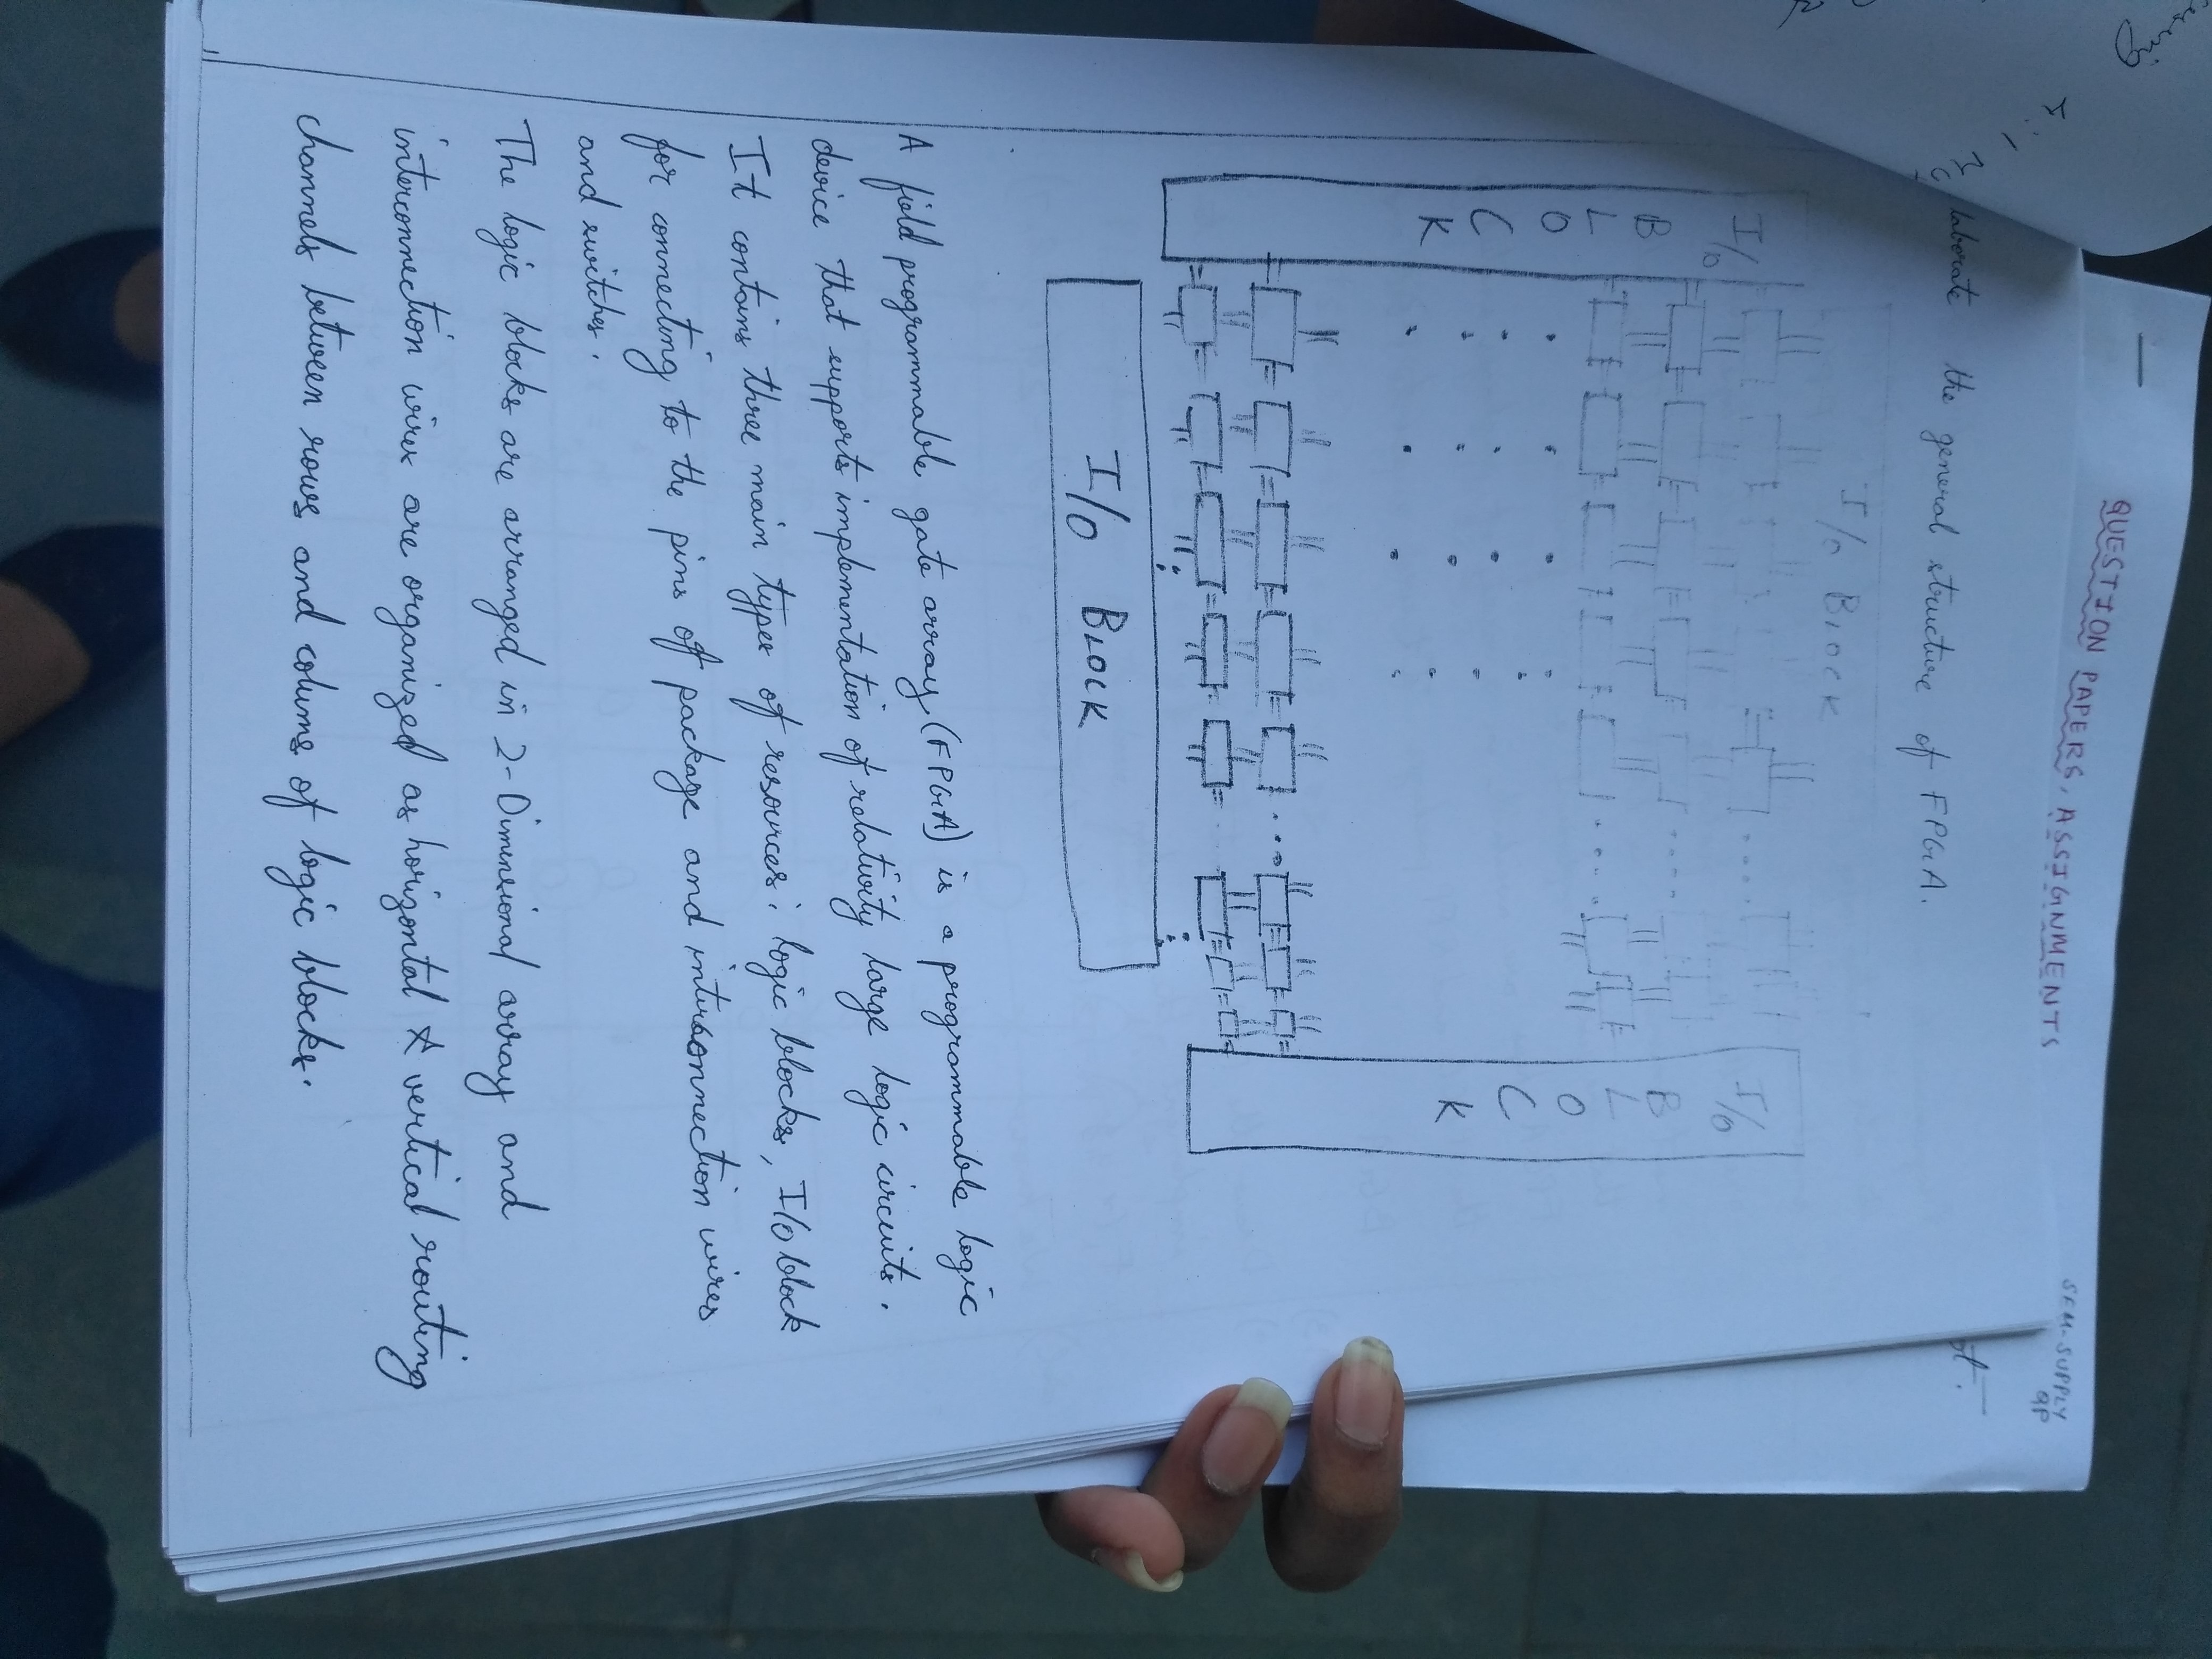 QUESTION PAPERS, ASSIGNMENTS
SEM-SUPPLY
QP
the general structure of FPGA.
I/O BLOCK
I/O
B
L
O
C
K
I/O
B
L
O
C
K
I/O BLOCK
A field programmable gate array (FPGA) is a programmable logic
device that supports implementation of relativity large logic circuits.
It contains three main types of resources: logic blocks, I/O block
for connecting to the pins of package and intersonnection wires
and switches.
The logic blocks are arranged in 2-Dimensional array and
interconnection wires are organized as horizontal & vertical routing
channels between rows and colums of logic blocks.